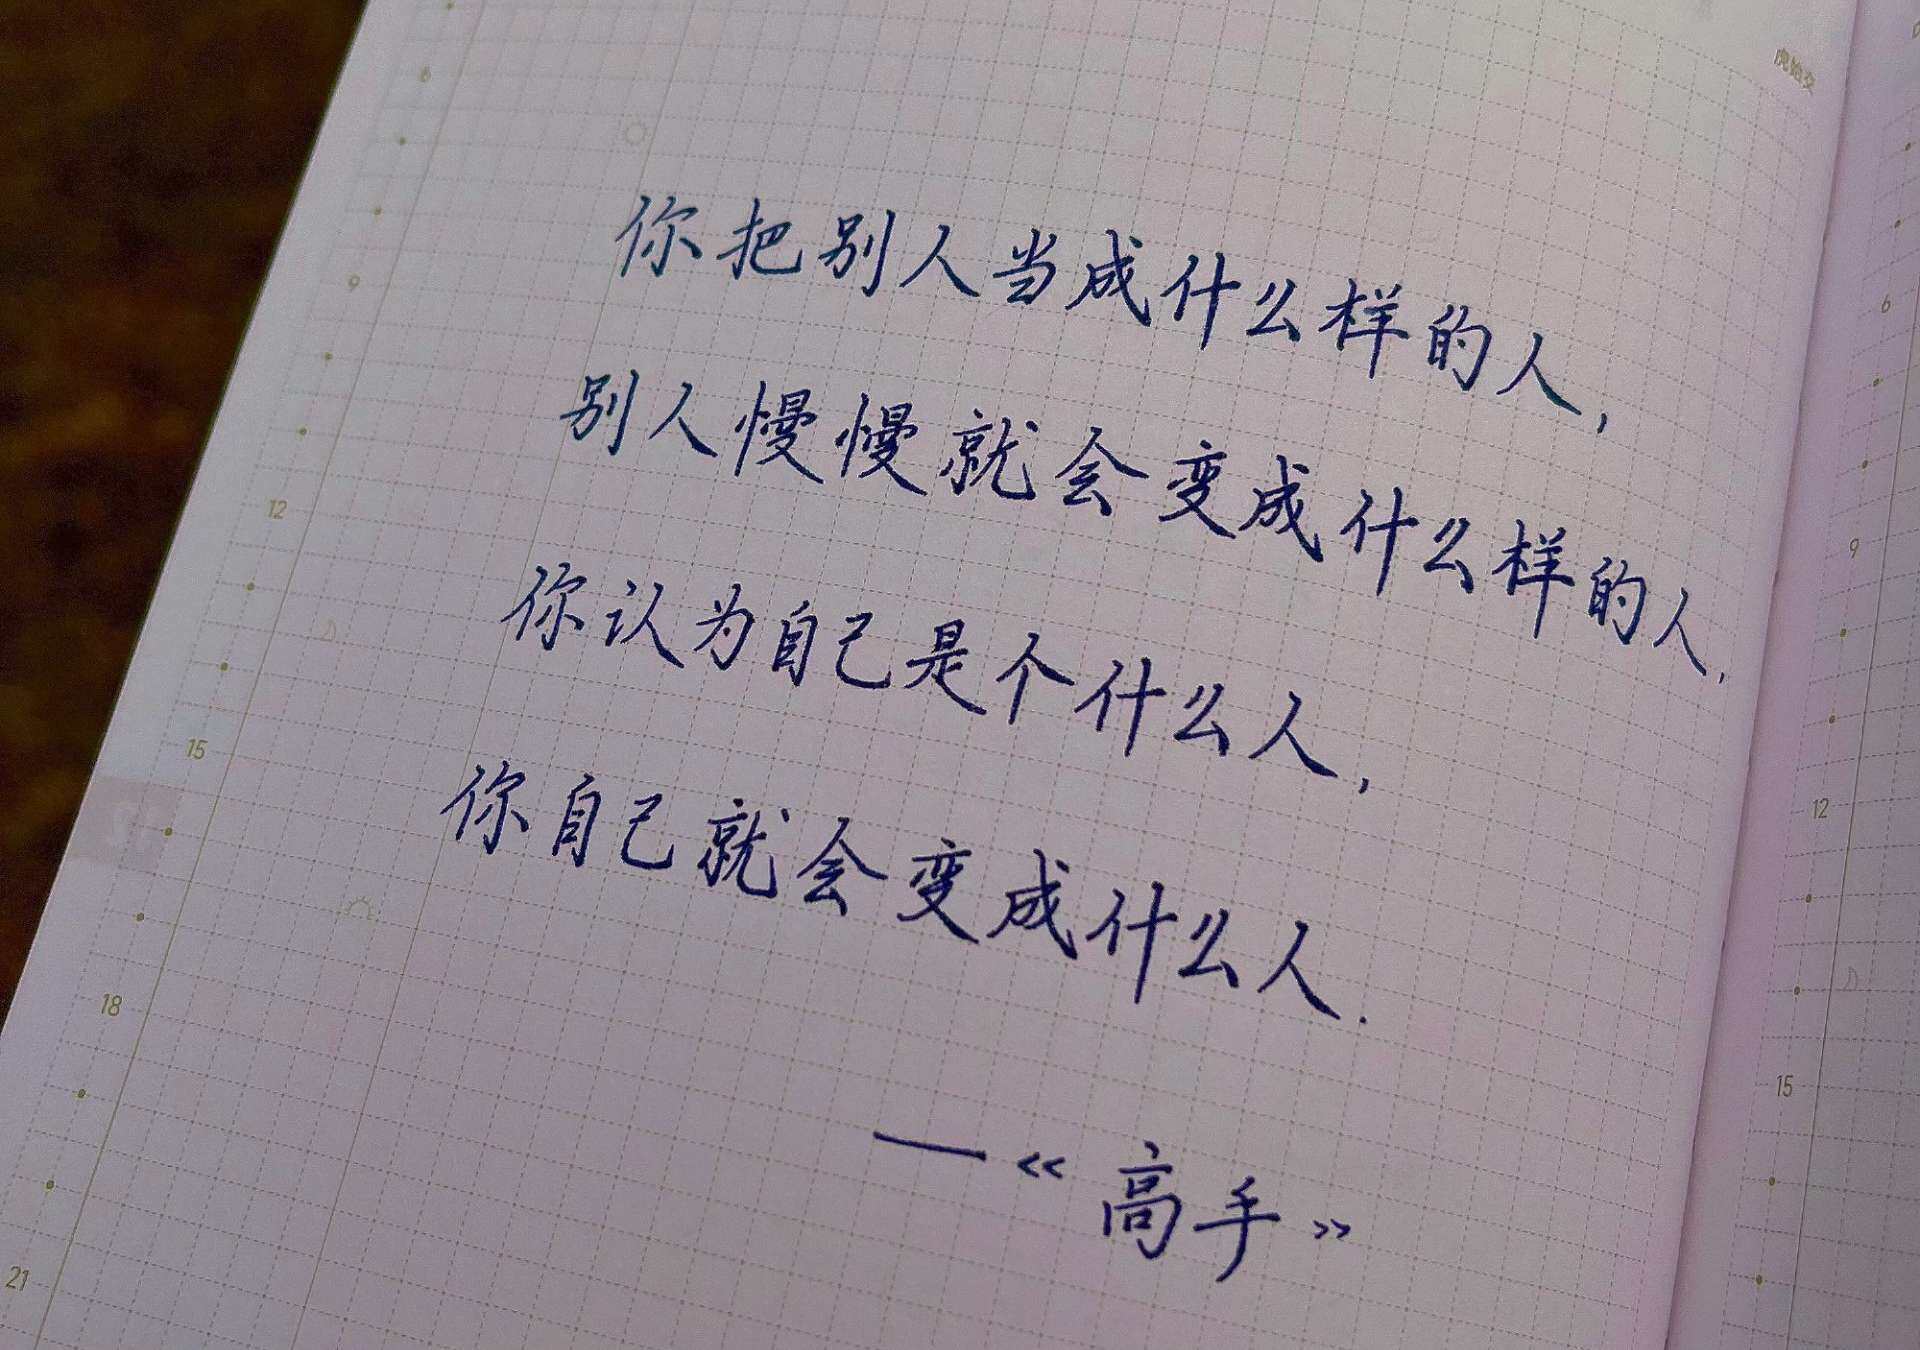 你把别人当成什么样的人，
别人慢慢就会变成什么样的人，
你认为自己是个什么人，
你自己就会变成什么人.
—《高手》
虎始交
6
9
12
15
18
21
6
9
12
15